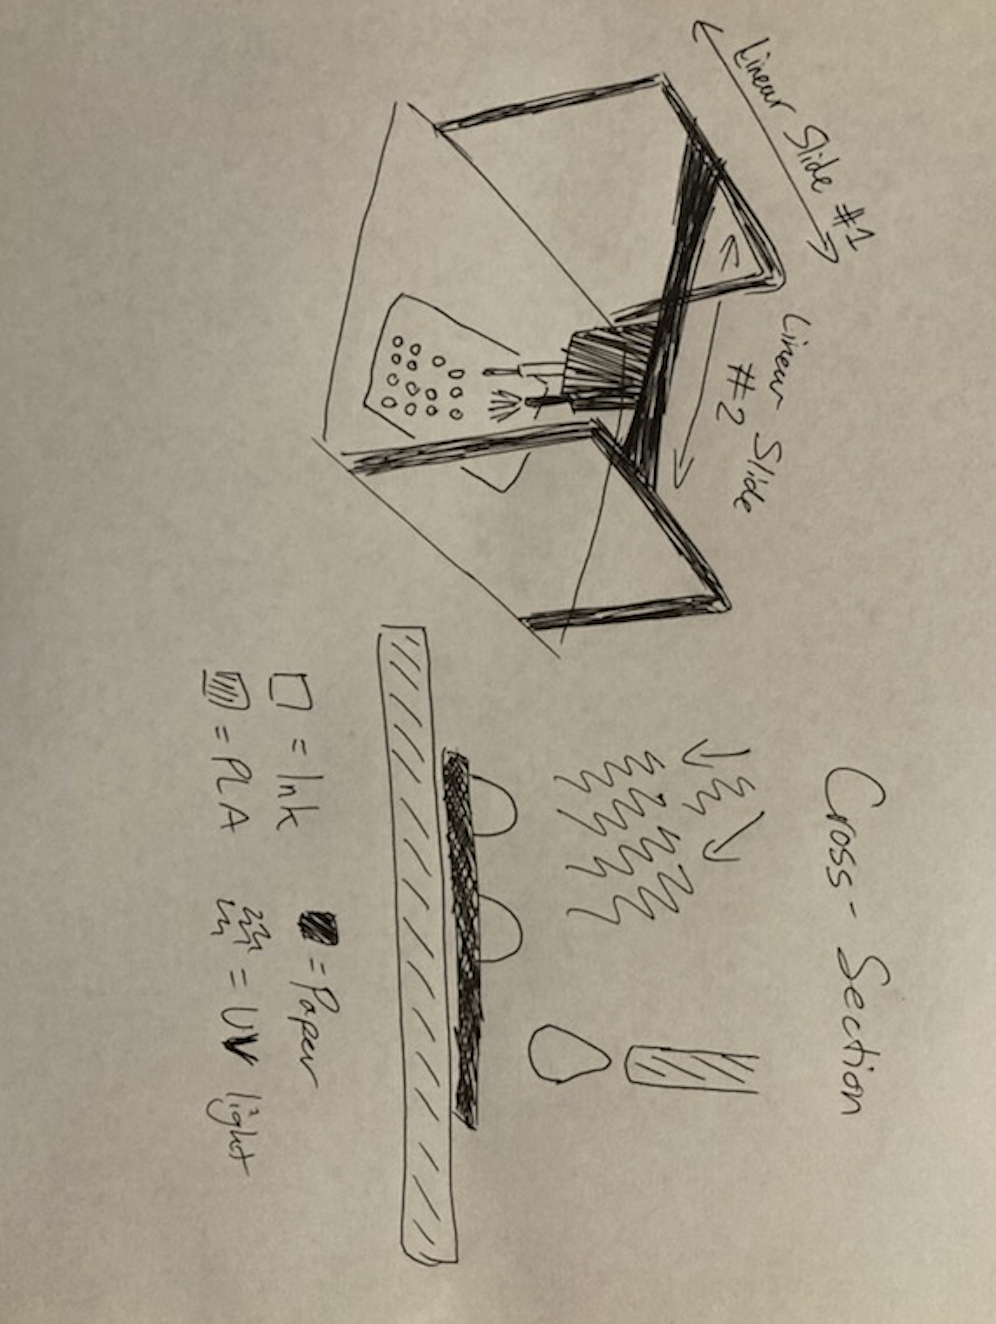 Linear Slide #1
Linear Slide
#2
Cross-Section
= Ink
= Paper
= PLA
= UV light